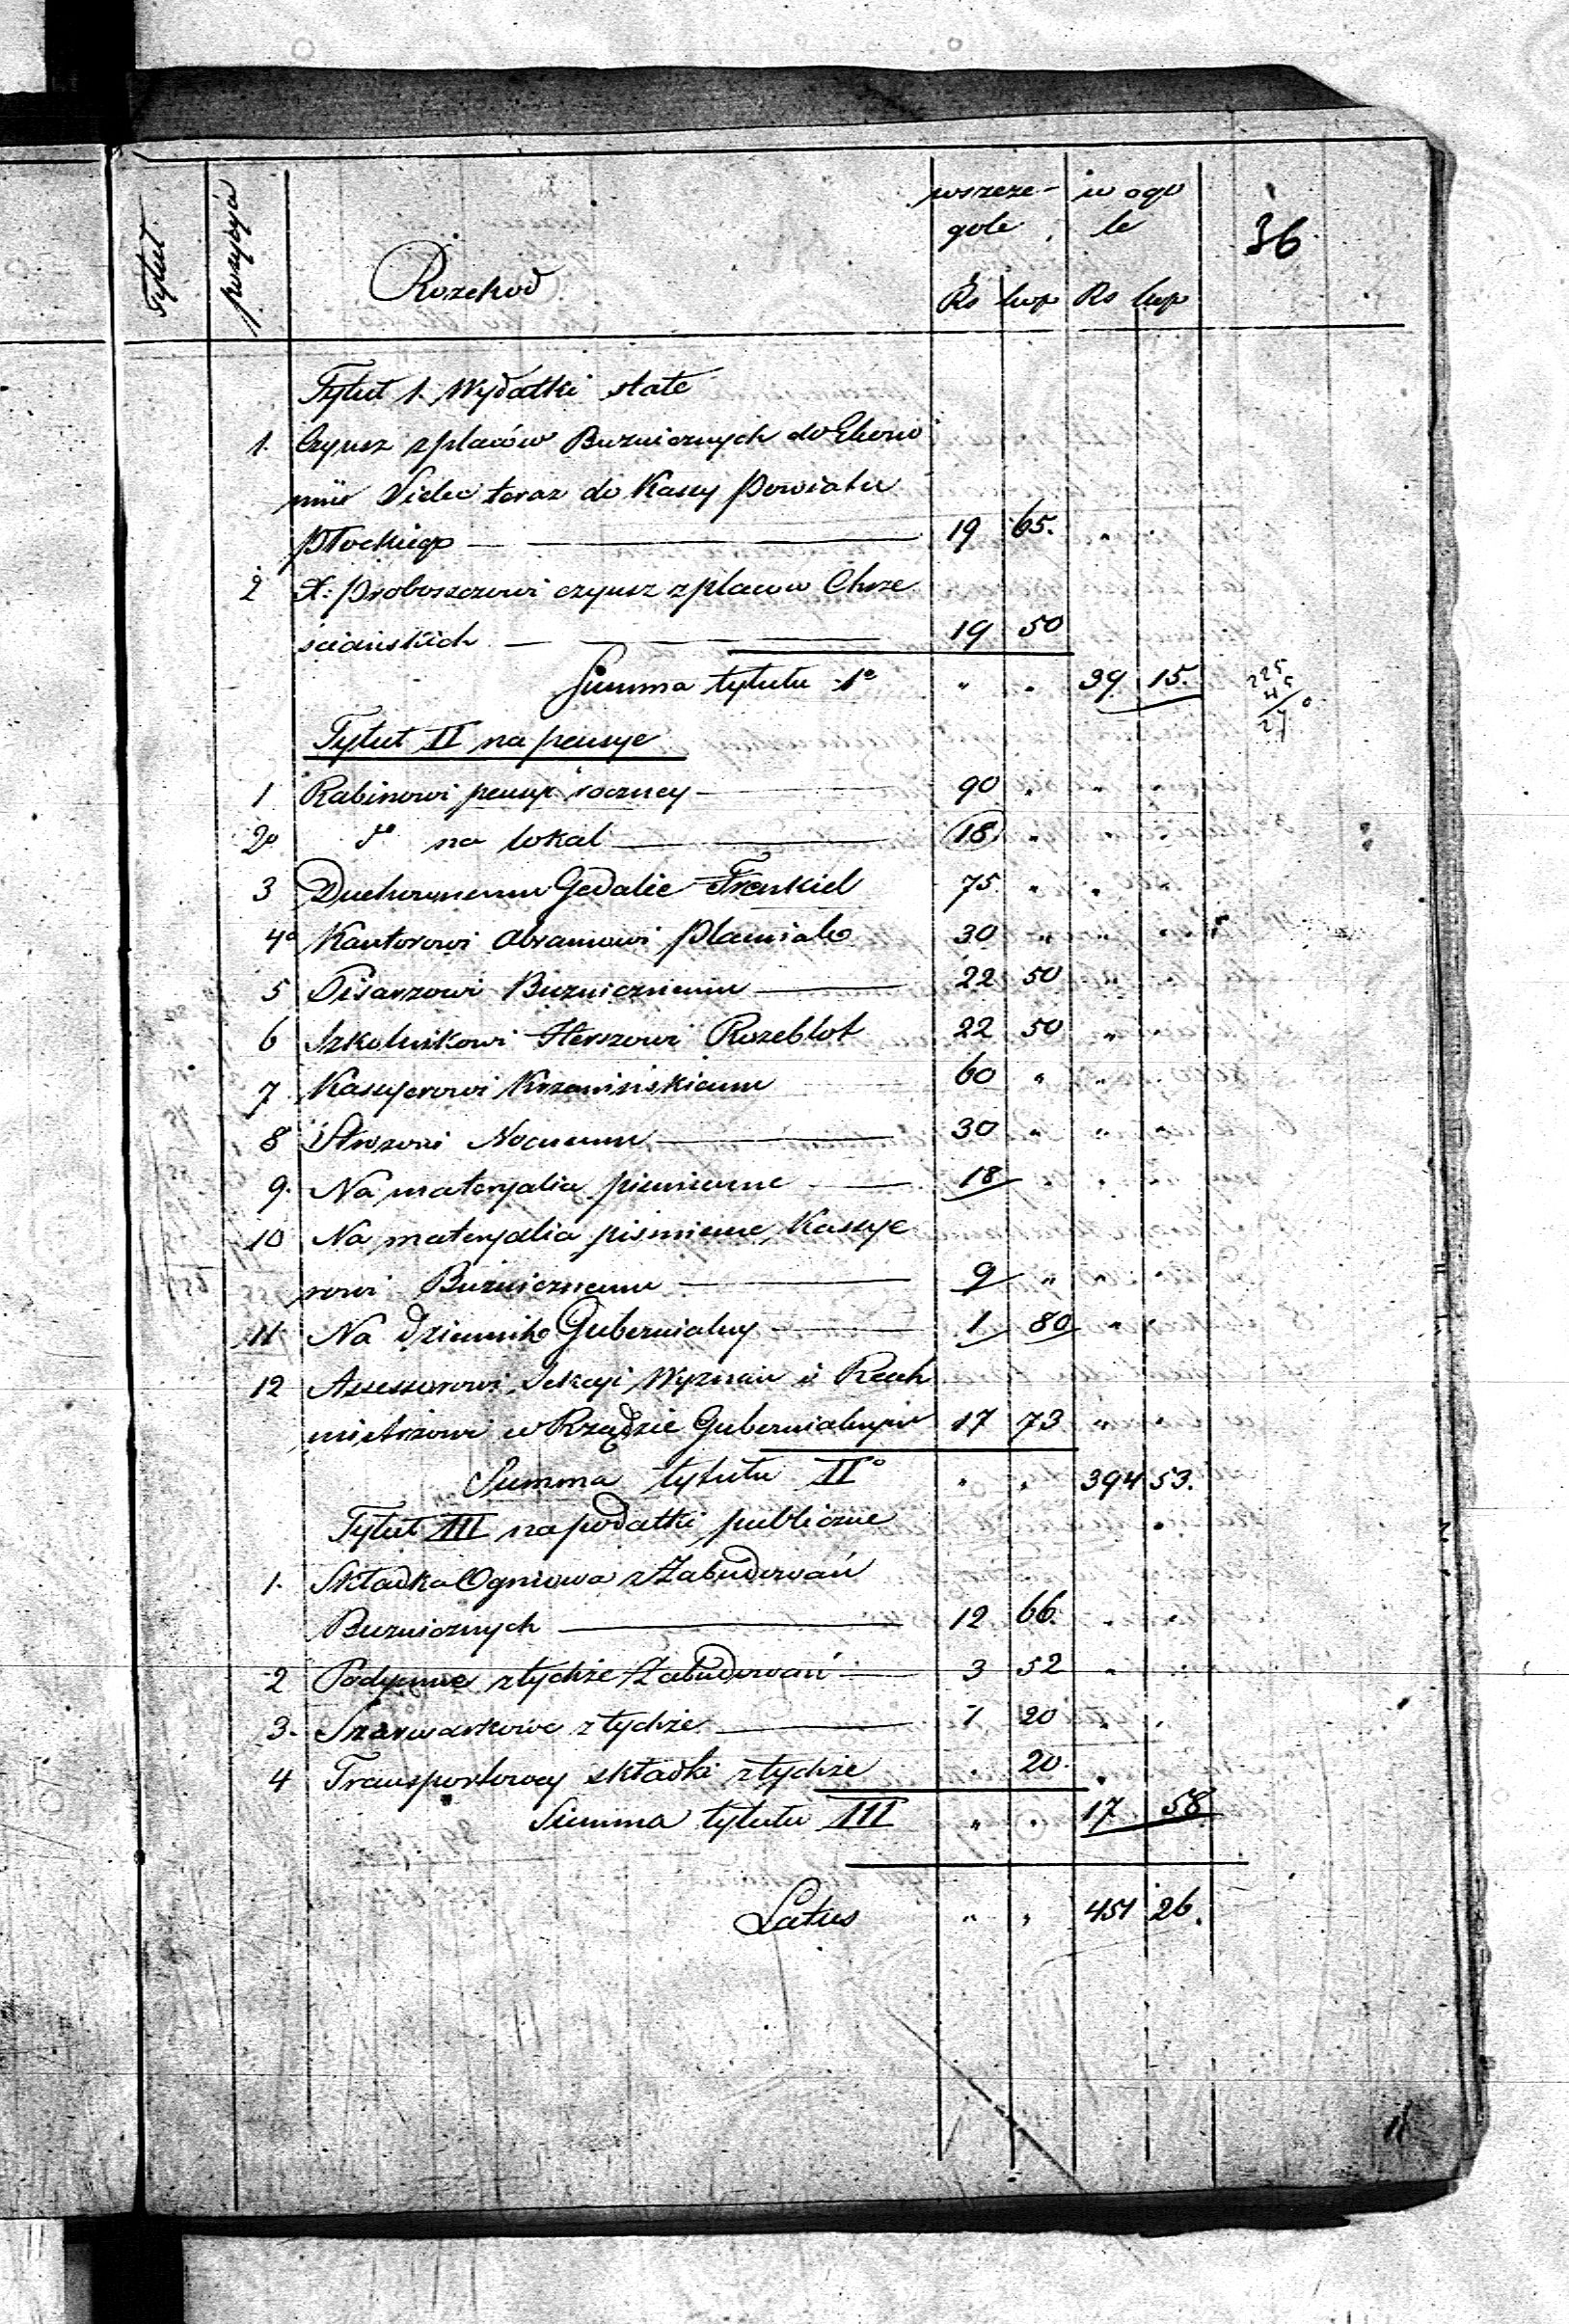 Tytuł
pozycja
Rozchod
wszcze-
gole
w ogo
le
36
Rs kop Rs kop
Tytuł 1. Wydatki stałe
1. Czynsz z placów Buznicznych do Ekono
mii Sielec teraz do Kassy Powiatu
Płockiego 19 65. "
2 X: Proboszczowi czynsz z placow Chrze
sciańskich 19 50
Summa tytułu 1º " " 39 15.
225
27
Tytuł II na pensye
1 Rabinowi pensyi roczney 90 " " "
2º dº na lokal 18 " " "
3 Duchownemu Gedalie Frenkiel 75 " "
4º Kantorowi Abramowi Plamiak 30 " " "
5 Pisarzowi Buznicznemu 22 50 " "
6 Szkolnikowi Herszowi Rozeblot 22 50 " "
7 Kassyerowi 60 " "
8 Strozowi Nocnemu 30 " " "
9. Na materyalia piśmienne 18 " " "
10 Na materyalia piśmienne Kassye
rowi Buznicznemu 9 " " "
11 Na dziennik Gubernialny 1 80 " "
12 Assessorowi Sekcyi Wyznan i Rach
mistrzowi w Rządzie Gubernialnym 17 73 " "
Summa tytułu IIº " " 394 53.
Tytuł III na podatki publiczne
1. Składka Ogniowa z Zabudowań
Buznicznych 12 66. " "
2 Podymne z tychże Zabudowań 3 52 " "
3. Szarwarkowe z tychże 1 20 " "
4 Transportowey składki z tychże " 20. "
Summa tytułu III " " 17 58
Latus " " 451 26.